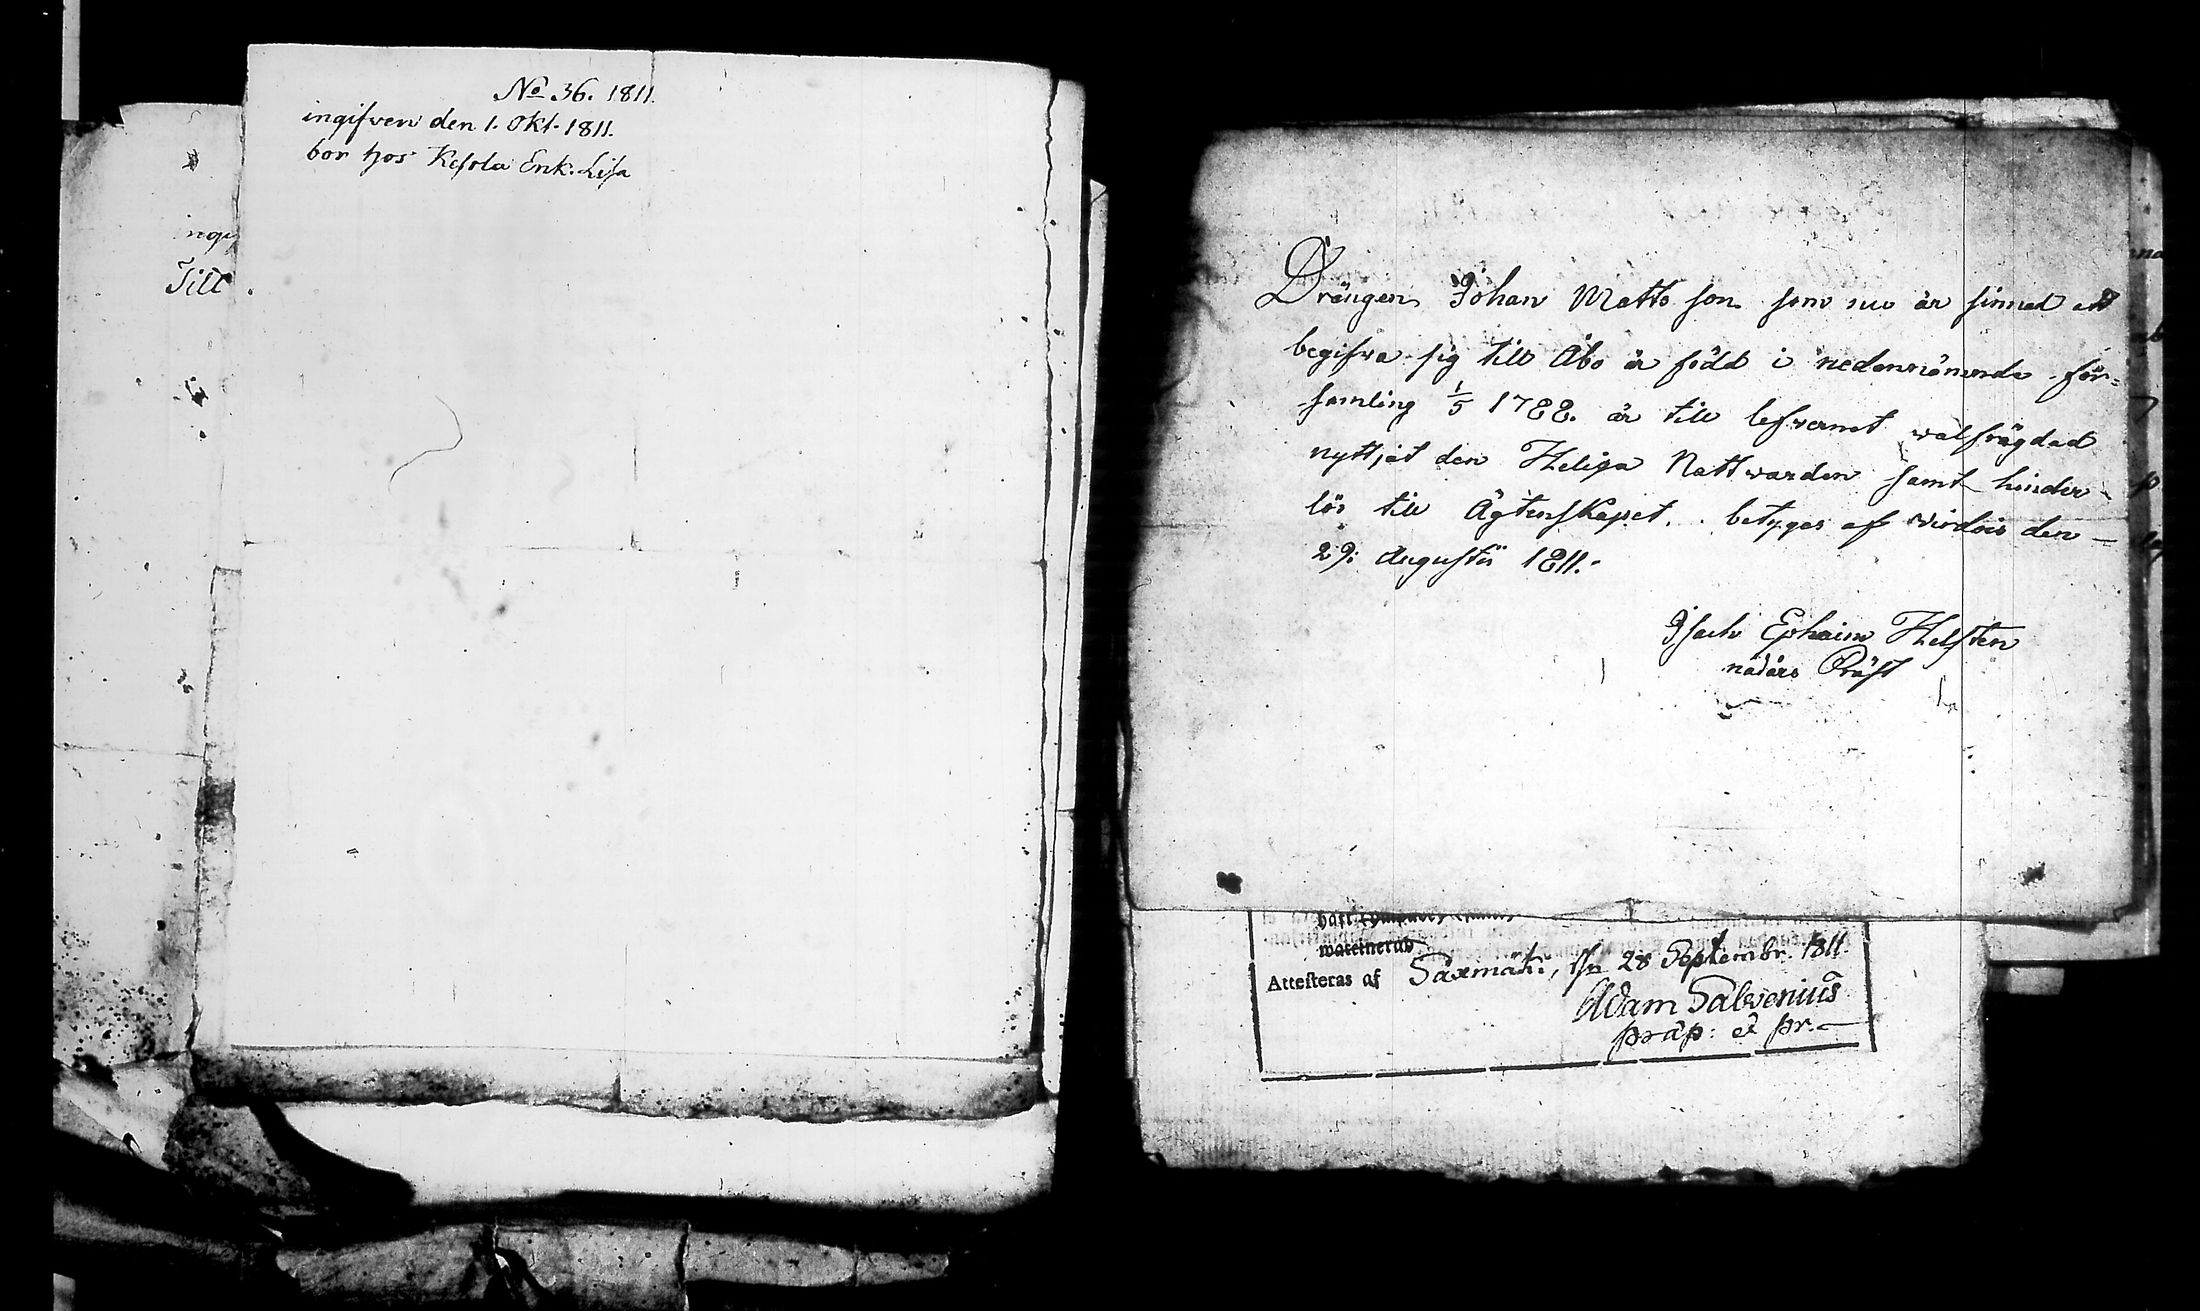 No 36. 1811.
ingifven den 1. Okt. 1811.
bor hos Kesola Enk. Lisa
ingif
Till
Drängen Johan Matts son som nu är sinnad att
begifva sig till Åbo är född i nedannämnde för=
samling 1/5 1788. är till lefvernet välfrägdad
nyttjat den Heliga Nattvarden samt hinder-
lös till Ägtenskapet. betygas af Virdois den
29: Augusti 1811.
Isach Ephraim Helsten
nådårs Präst
Attesteras af Saxmäki, d. 28 Septembr. 1811.
Adam Salvenius
präp: & pr.